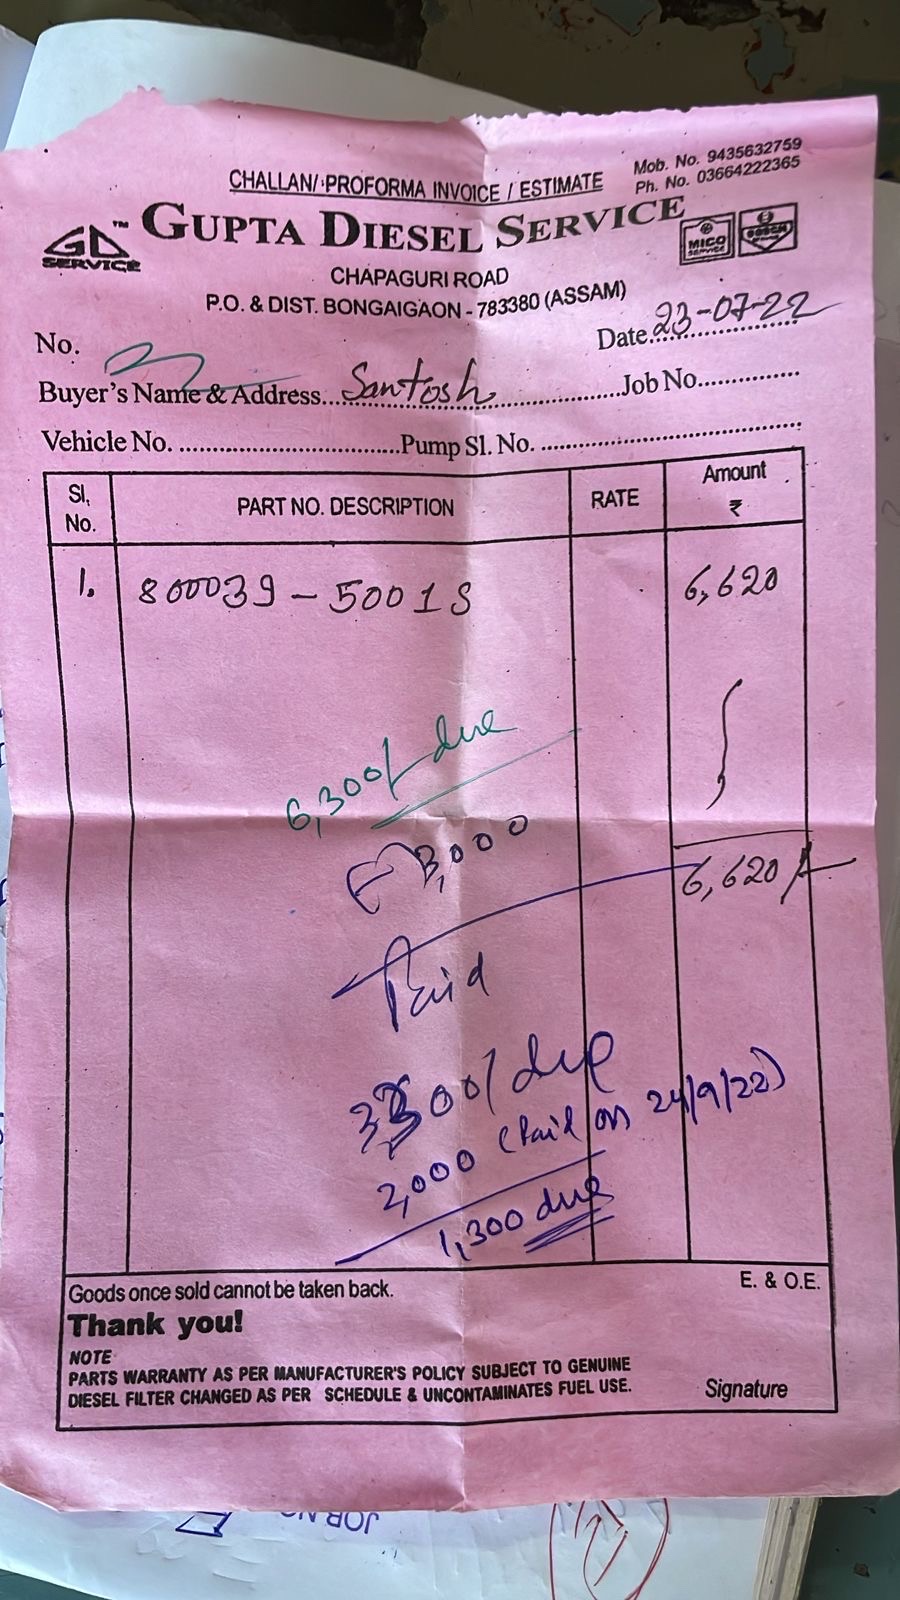 CHALLAN/ PROFORMA INVOICE / ESTIMATE
Mob. No. 9435632759
Ph. No. 03664222365
GD SERVICE ™
GUPTA DIESEL SERVICE
MICO SERVICE
BOSCH
CHAPAGURI ROAD
P.O. & DIST. BONGAIGAON - 783380 (ASSAM)
No.
Date 23-07-22
Buyer's Name & Address... Santosh Job No.
Vehicle No. Pump Sl. No.
Sl. No. PART NO. DESCRIPTION RATE Amount ₹
1. 800039 - 5001S 6,620
6,300/- due
3,000
6,620/-
Paid
3300/- due
2,000 (Paid on 24/9/22)
1,300 due
Goods once sold cannot be taken back. E. & O.E.
Thank you!
NOTE
PARTS WARRANTY AS PER MANUFACTURER'S POLICY SUBJECT TO GENUINE
DIESEL FILTER CHANGED AS PER SCHEDULE & UNCONTAMINATES FUEL USE.
Signature
JOB NO